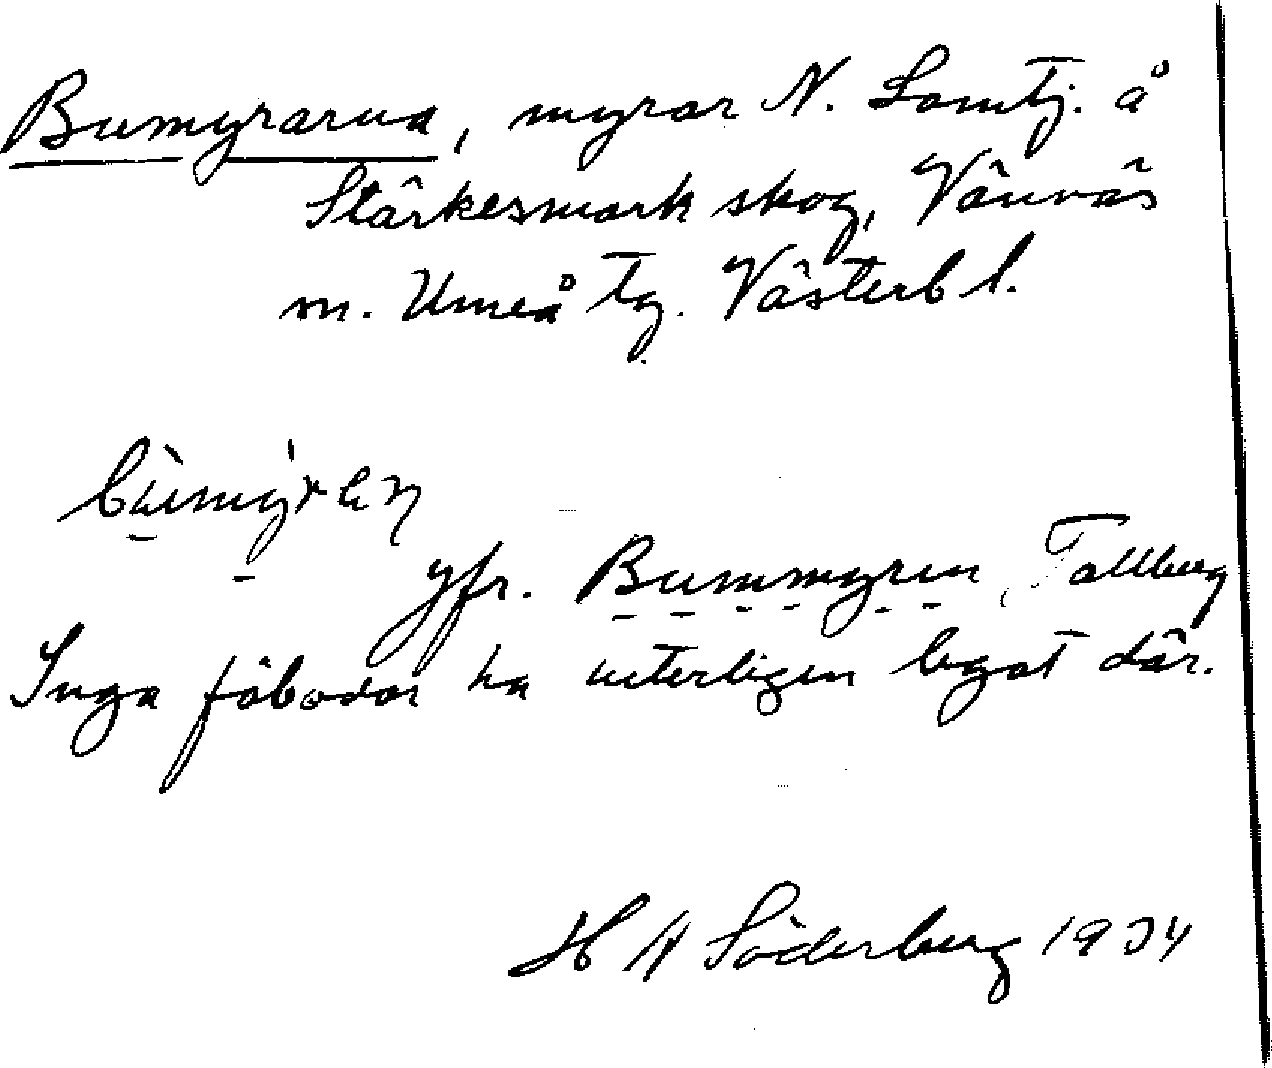 Bumyrarna, myrar N. Lomtj. å
Stärkesmark skog, Vännäs
m. Umeå tg. Västerb l.
bùmýren
jfr. Bummyren, Tallberg
Inga fäbodar ha veterligen legat där.
H N Söderberg 1934